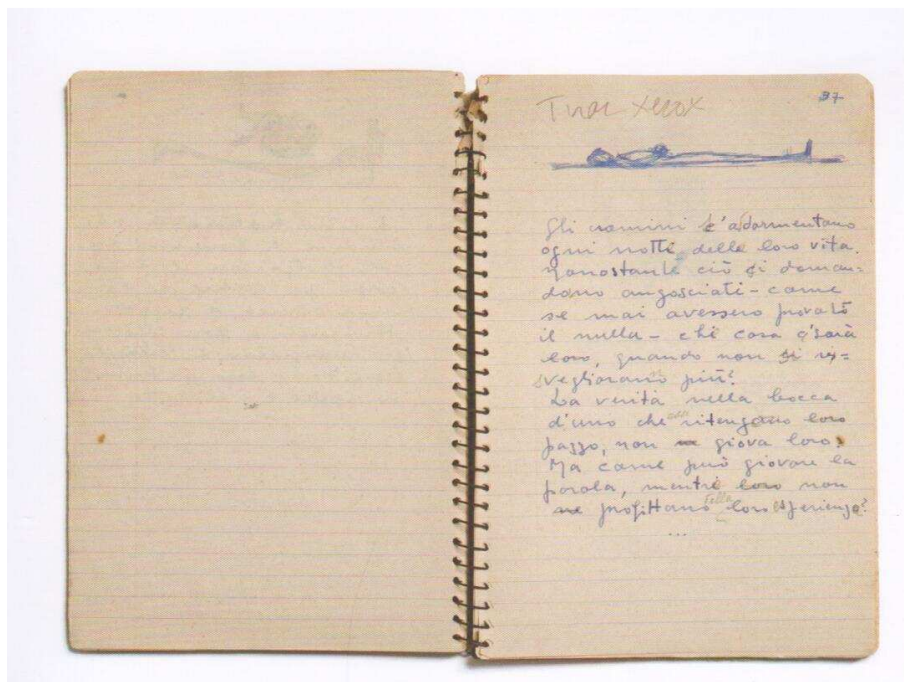 37
Gli uomini s'addormentano
ogni notti delle loro vita.
Nonostante ciò si doman=
dano angosciati - come
se mai avessero provato
il nulla - che cosa c'sarà
loro, quando non si
sveglioranno più?
La verità nella bocca
d'uno che ritengano loro
pazzo, non giova loro?
Ma come può giovare la
parola, mentre loro non
ne profittano della loro sperienza?
...